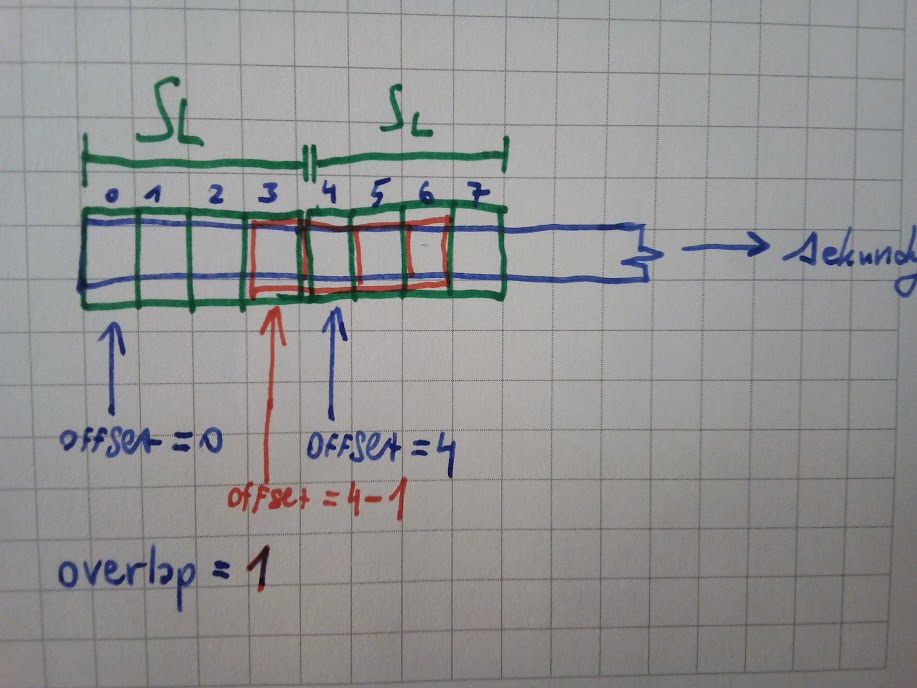 SL SL
0 1 2 3 4 5 6 7
sekundy
offset = 0 offset = 4
offset = 4-1
overlap = 1